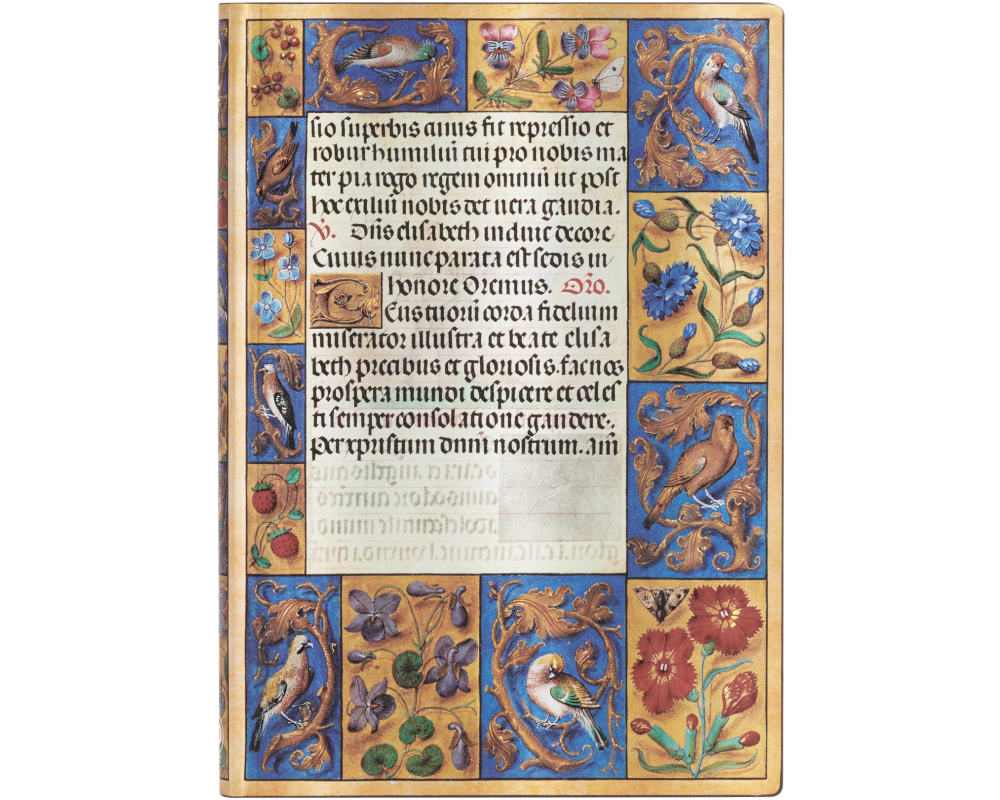 sio superbis cuius fit repressio et
robur humiliū tui pro nobis ma
ter pia rogo regem omniū ut post
hoc exiliū nobis det vera gaudia.
℣. Dn̄s elisabeth induit decore
Cuius nunc parata est sedis in
honore Oremus. Or̄o.
Deus tuorū corda fidelium
miserator illustra et beate elisa
beth precibus et gloriosis. fac nos
prospera mundi despicere et celes
ti semper consolatione gaudere.
Per xpristum dn̄m nostrum. am̄